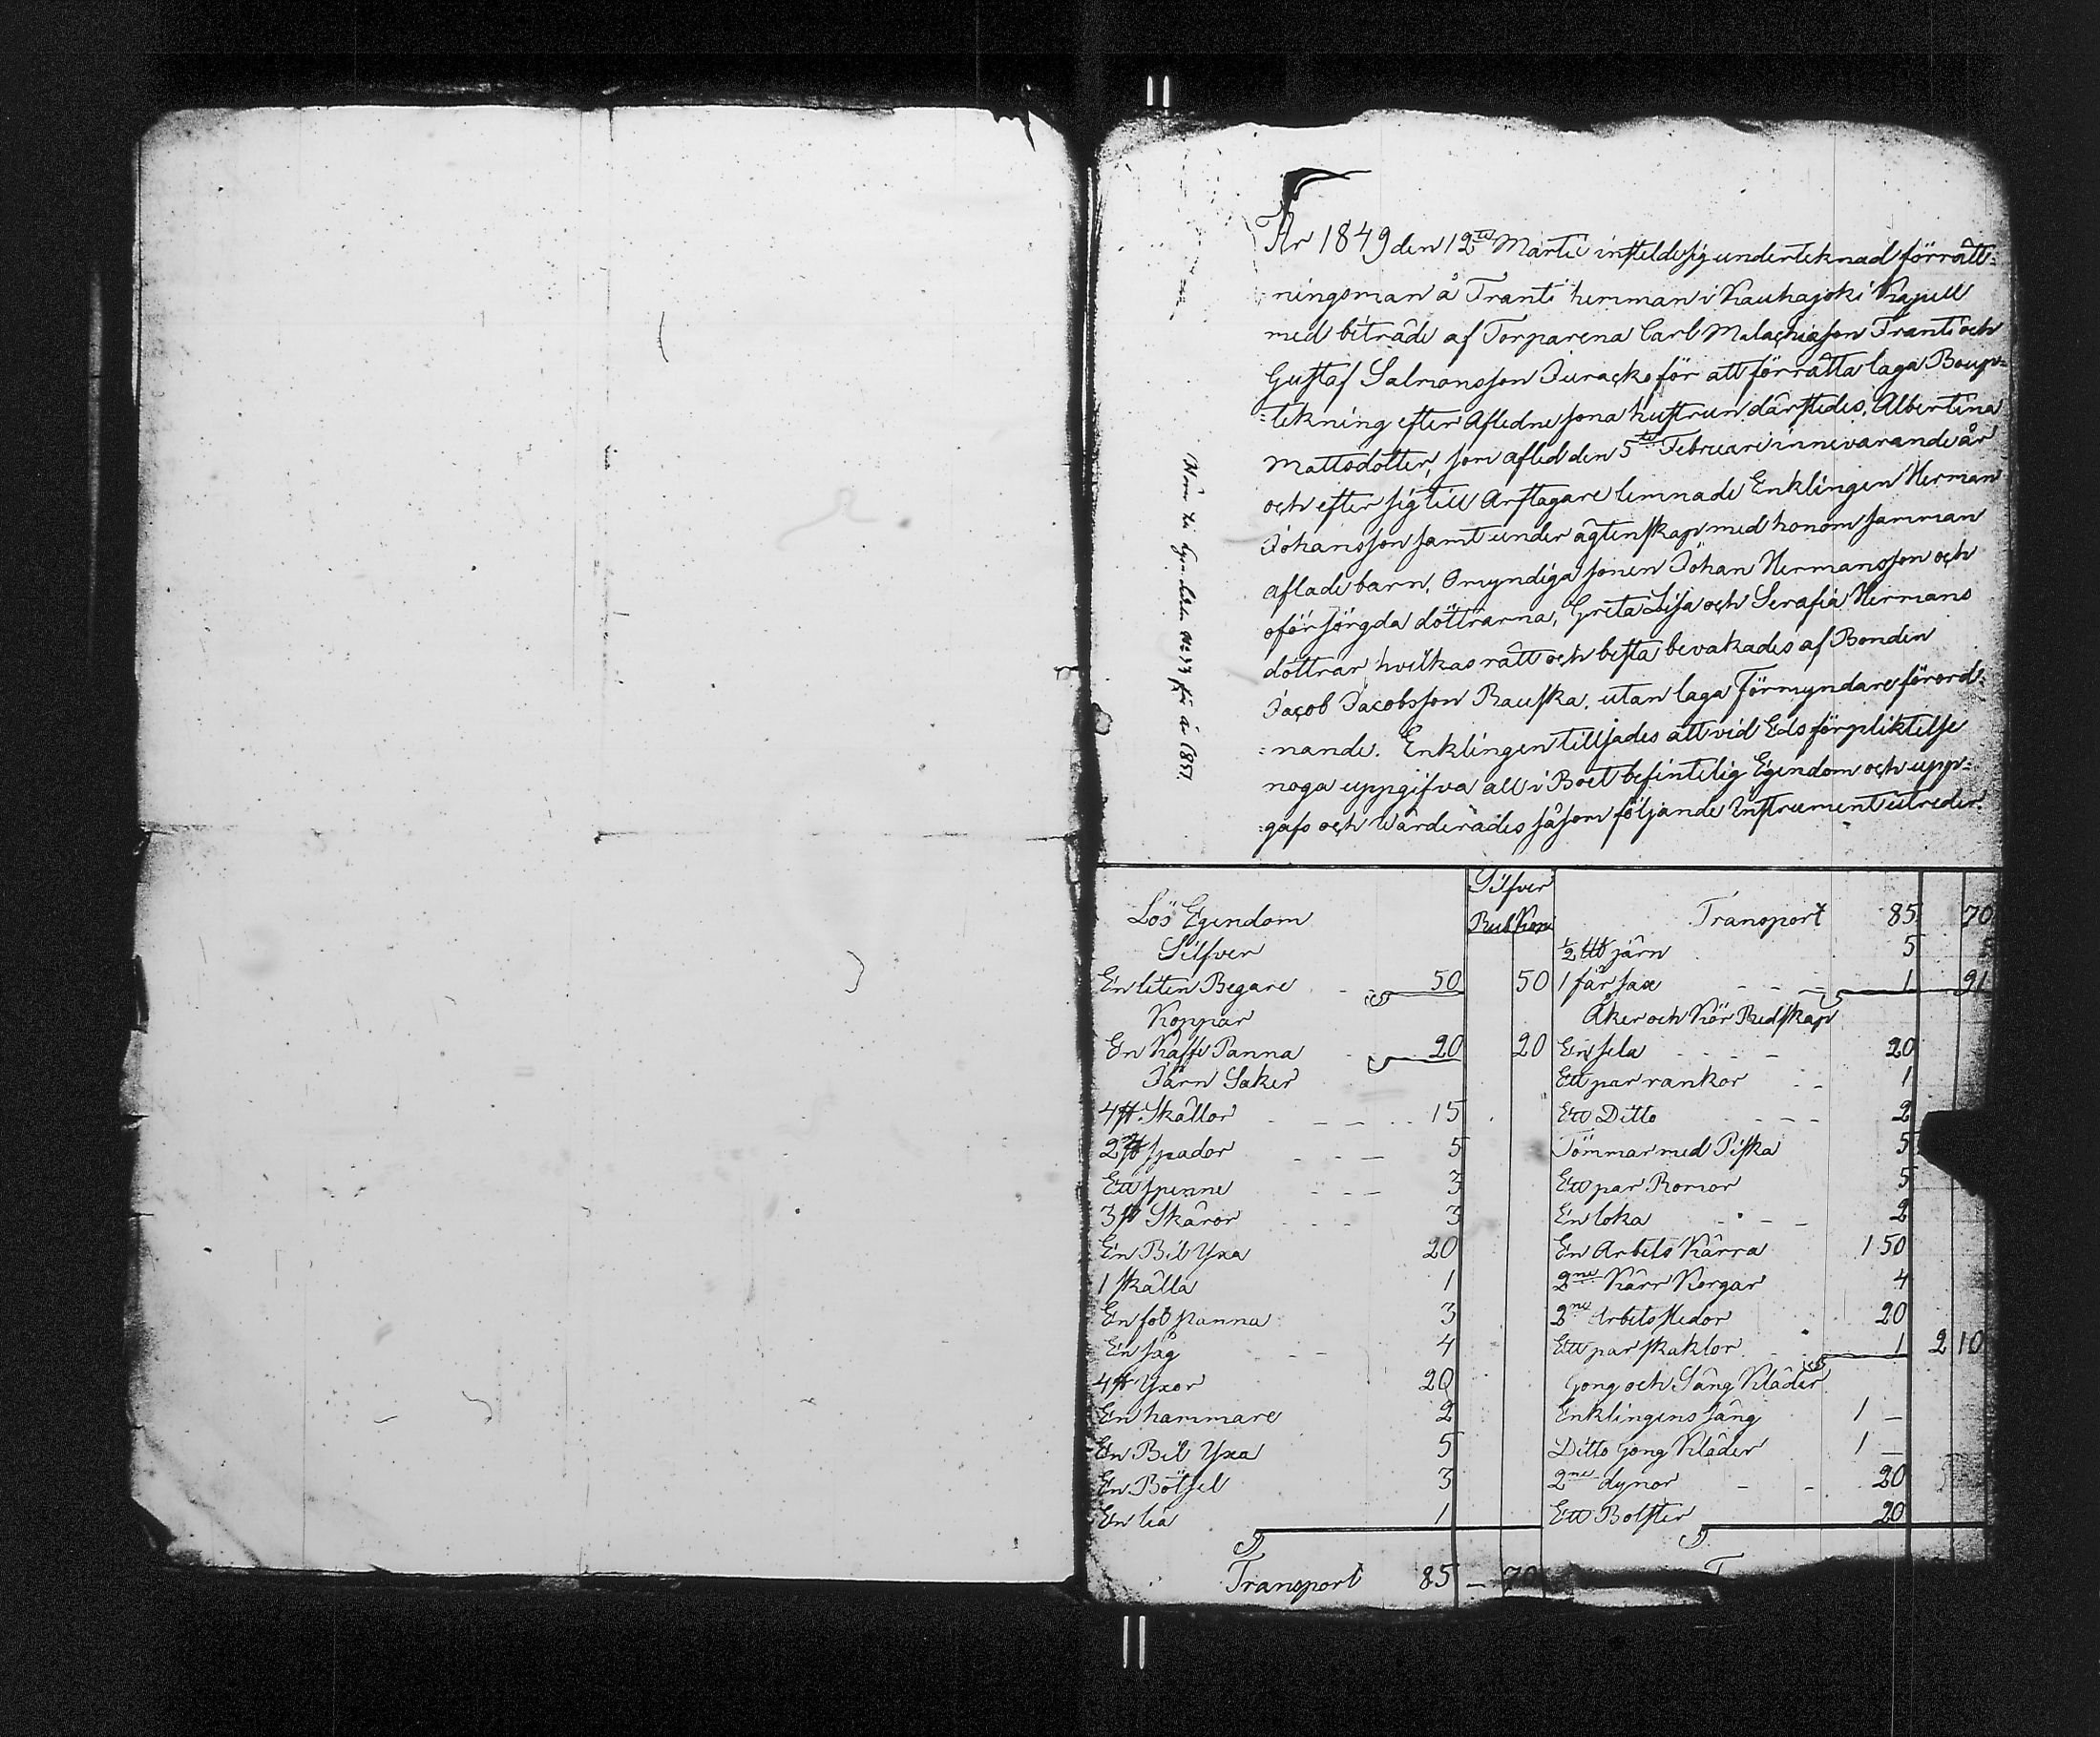 År 1849 den 12te Martii instelde sig underteknad förrätt=
ningsman å Tranti hemman i Kauhajoki Kapell
med biträde af Torparena Carl Malachiasson Tranti och
Gustaf Salmonsson Juracko för att förrätta laga Boup=
=tekning efter Afledne sona hustrun därstedes, Albertina
Mattsdotter, som afled den 5te Februari innevarande år
och efter sig till Arftagare lemnade Enklingen Herman
Johansson samt under ägtenskap med honom samman
aflade barn, Omyndiga sonen Johan Hermansson och
oförsörgda döttrarna, Greta Lisa och Serafia Hermans
döttrar hvilkas rätt och besta bevakades af Bonden
Jacob Jacobsson Rauska, utan laga Förmyndare förord=
=nande. Enklingen tillsades att vid Eds förpliktelse
noga uppgifva all i Boet befintelig Egendom och upp=
=gafs och Wärderades såsom följande Instrument utreder.
för år 1851.
Silfver
Lös Egendom Rub Kop
Silfver
En liten Begare 50 50
Koppar
En Kaffe Panna 20 20
Järn Saker
4 st Skällor 15
2 st spador 5
Ett spenne 3
3 st Skäror 3
En Bil Yxa 20
1 skälla 1
En fot panna 3
En såg 4
4 st Yxor 20
En hammare 2
En Bil Yxa 5
En Bötsel 3
En lia 1
Transport 85 – 70
Transport 85 70
½ tt järn 5
1 får sax 1 91
Åker och Kör Redskap
En sela 20
Ett par rankor 1
Ett Ditto 2
Tömmar med Piska 5
Ett par Romor 5
En loka 2
En Arbets Kärra 1 50
2ne Kärr Korgar 4
2ne Arbets Medor 20
Ett par skaklor 1 2 10
Gong och Säng Kläder
Enklingens säng 1 –
Ditto Gong Kläder 1 –
2ne dynor 20
Ett Bolster 20